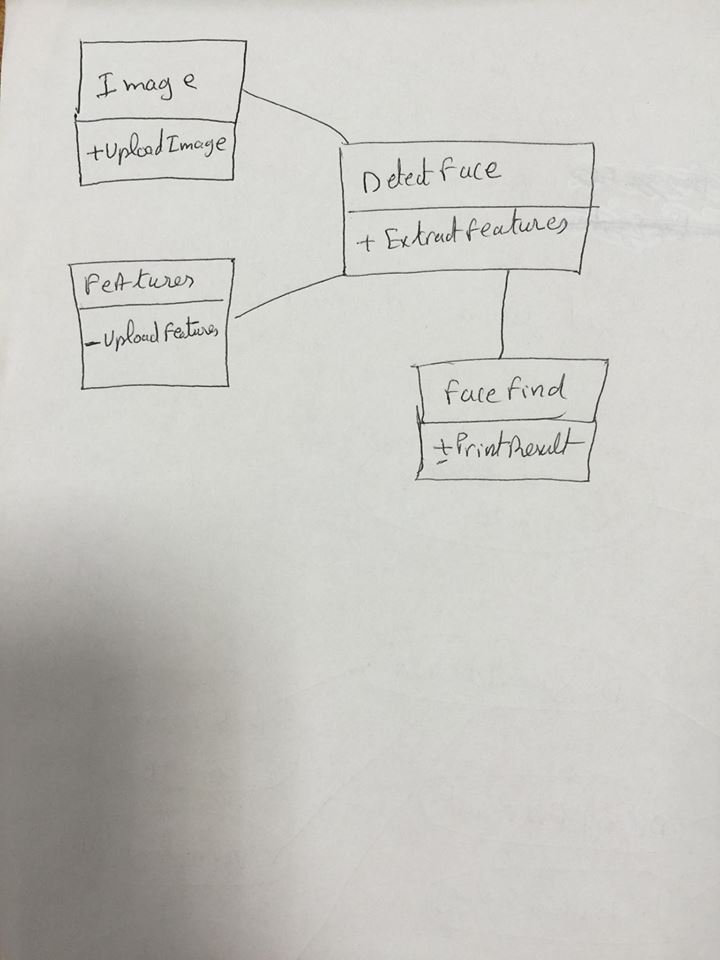 Image
+UploadImage
Detect face
+ Extract features
FeAtures
-Upload features
face find
±PrintResult